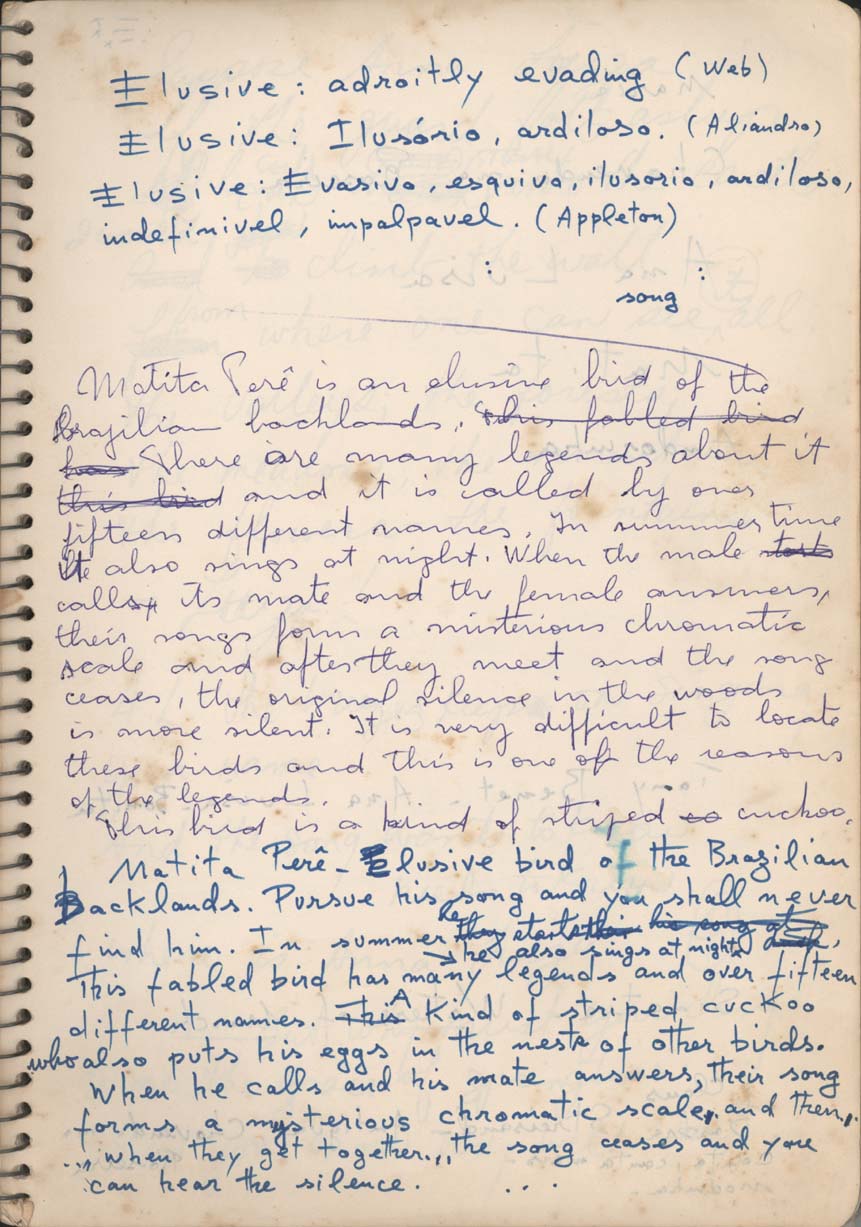 Elusive : adroitly evading (Web)
Elusive : Ilusório, ardiloso. (Aliandro)
Elusive : Evasivo, esquivo, ilusorio, ardiloso,
indefinivel, impalpavel. (Appleton)
song
Matita Perê is an elusive bird of the
Brazilian backlands. This fabled bird
has There are many legends about it
this bird and it is called by over
fifteen different names. In summer time
it also sings at night. When the male
calls, its mate and the female answers,
their songs form a misterious chromatic
scale and after they meet and the song
ceases, the original silence in the woods
is more silent. It is very difficult to locate
these birds and this is one of the reasons
of the legends.
This bird is a kind of striped co cuckoo.
Matita Perê - Elusive bird of the Brazilian
Backlands. Pursue his song and you shall never
find him. In summer he they starts their his song at
→ he also sings at night.
This fabled bird has many legends and over fifteen
different names. This A kind of striped cuckoo
who also puts his eggs in the nests of other birds.
When he calls and his mate answers, their song
forms a mysterious chromatic scale, and then,..
... when they get together.., the song ceases and you
can hear the silence. ...